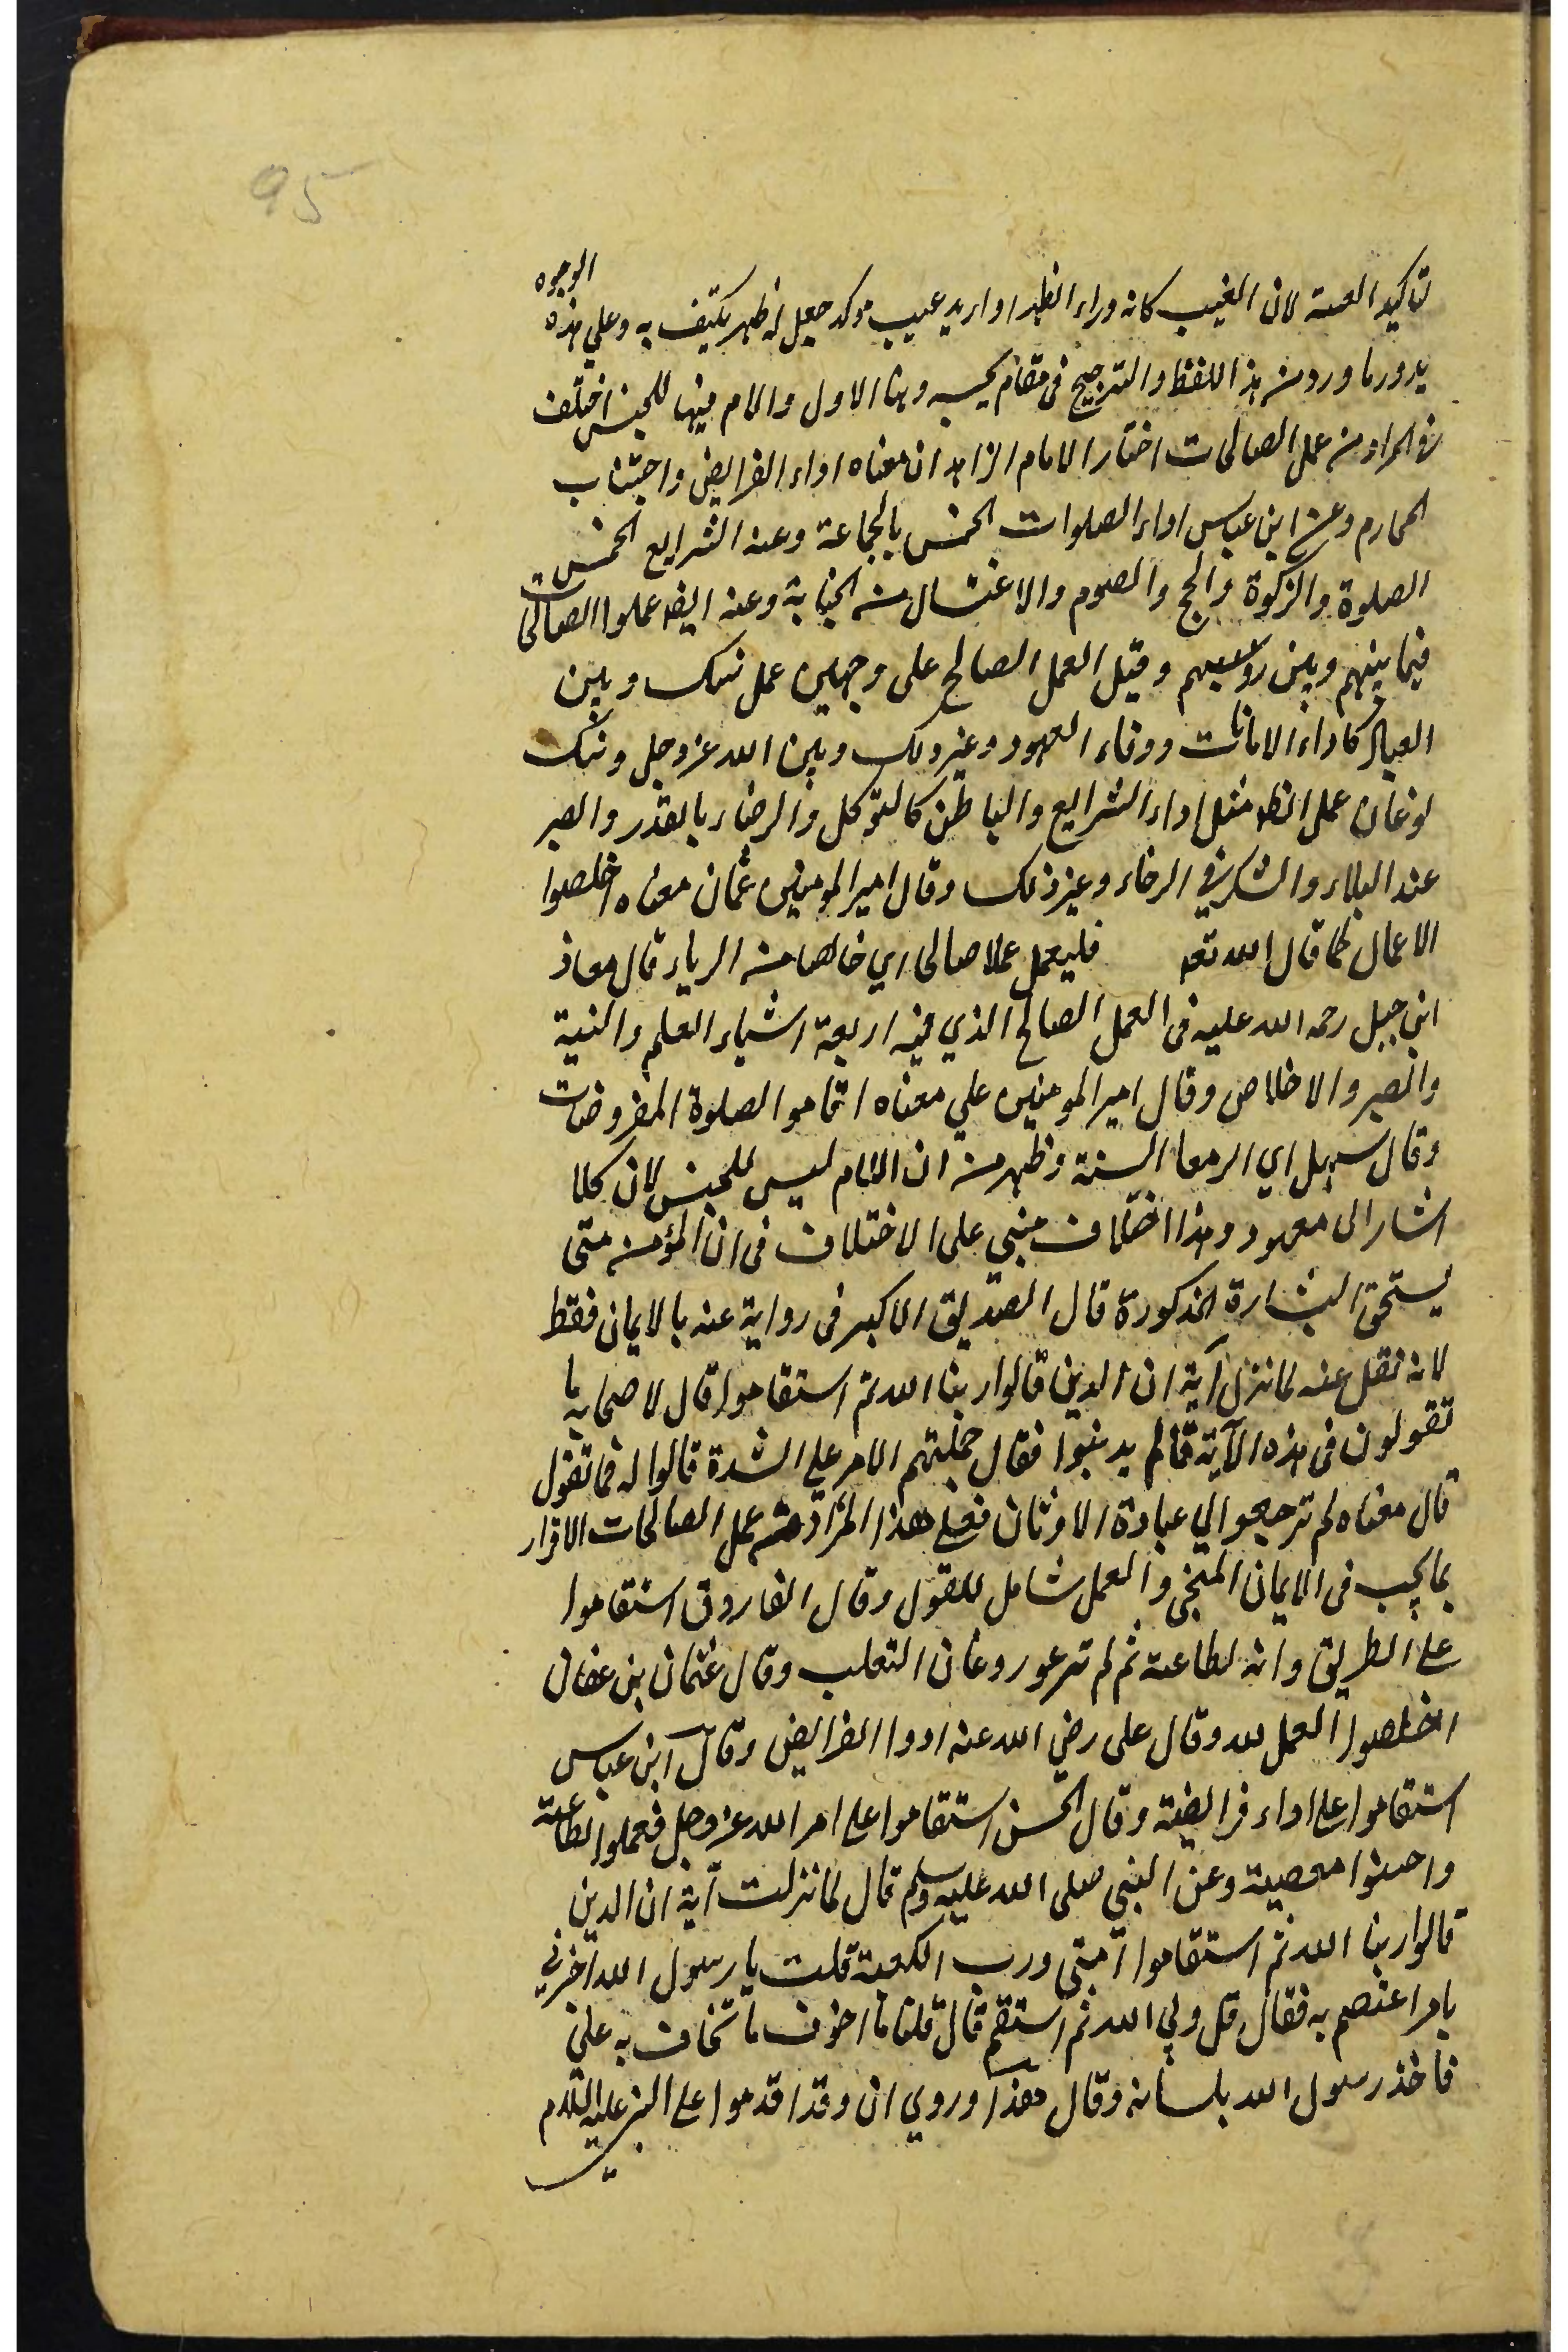 95
الوجوه
لتاكيد العسه لان الغيب كانه وراء الظهر او اريد عيب موكد جعل له ظهر يكتيف به وعلي هذه
يدور ما ورد من هذا اللفظ والترجيح فى مقام يحسبه وهنا الاول والام فيها للجنس اختلف
فى المراد من عمل الصالحات اختار الامام الزاهد ان معناه اداء الفرايض واجتناب
المحارم وعن ابن عباس اداء الصلوات الخمس بالجماعة وعنه الشرايع الخمس
الصلوة والزكوة والحج والصوم والاغتسال من الجنابة وعنه ايضا عملوا الصالحات
فيما بينهم وبين ربهم وقيل العمل الصالح على وجهين عمل بينك وبين
العباد كاداء الامانات ووفاء العهود وغير ذلك وبين الله عز وجل وبينك
نوعان عمل الظاهر مثل اداء الشرايع والباطن كالتوكل والرضاء بالقدر والصبر
عند البلاء والشكر في الرخاء وغير ذلك وقال امير المومنين عثمان معناه اخلصوا
الاعمال كما قال الله تعه فليعمل عملا صالحا اي خالصا من الرياء قال معاذ
ابن جبل رحمه الله عليه فى العمل الصالح الذي فيه اربعة اشياء العلم والنية
والصبر والاخلاص وقال امير المومنين علي معناه اقاموا الصلوة المفروضات
وقال سهل اي الزموا السنة وظهر من ان اللام ليس للجنس لان كلا
اشار الى معهود وهذا اختلاف مبني على الاختلاف فى ان المؤمن متى
يستحق البشارة المذكورة قال الصديق الاكبر فى رواية عنه بالايمان فقط
لانه نقل عنه لما نزل آية ان الذين قالوا ربنا الله ثم استقاموا قال لاصحابه ما
تقولون فى هذه الآية قالم يدنبوا فقال حملتهم الامر علي الشدة قالوا له فما تقول
قال معناه لم ترجعوا الي عبادة الاوثان فعلي هذا المراد من عمل الصالحات الاقرار
بما يجب فى الايمان المنجى والعمل شامل للقول وقال الفاروق استقاموا
على الطريق وانه لطاعته ثم لم تدعو روغان الثعلب وقال عثمان بن عفان
اخلصوا العمل لله وقال على رضي الله عنه ادوا الفرايض وقال ابن عباس
استقاموا على اداء فرايضه وقال الحسن استقاموا على امر الله عز وجل فعملوا لطاعته
واجتنبوا معصيته وعن النبي صلى الله عليه وسلم قال لما نزلت آية ان الذين
قالوا ربنا الله ثم استقاموا امتى ورب الكعبة قلت يا رسول الله اخبرني
بامر اعتصم به فقال قل ربي الله ثم استقم قال قلت ما اخوف ما تخاف به علي
فاخذ رسول الله بلسانه وقال هذا وروي ان وفدا قدموا على النبي عليه السلام